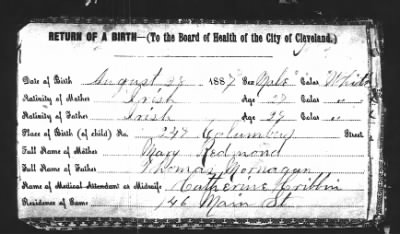 RETURN OF A BIRTH—(To the Board of Health of the City of Cleveland.)
Date of Birth August 28 1887 Sex Male Color White
Nativity of Mother Irish Age 27 Color " "
Nativity of Father Irish Age 29 Color " "
Place of Birth (of child) No. 247 Columbus Street
Full Name of Mother Mary Redmond
Full Name of Father Thomas
Name of Medical Attendant or Midwife Catherine Gribbin
Residence of Same 146 Main St